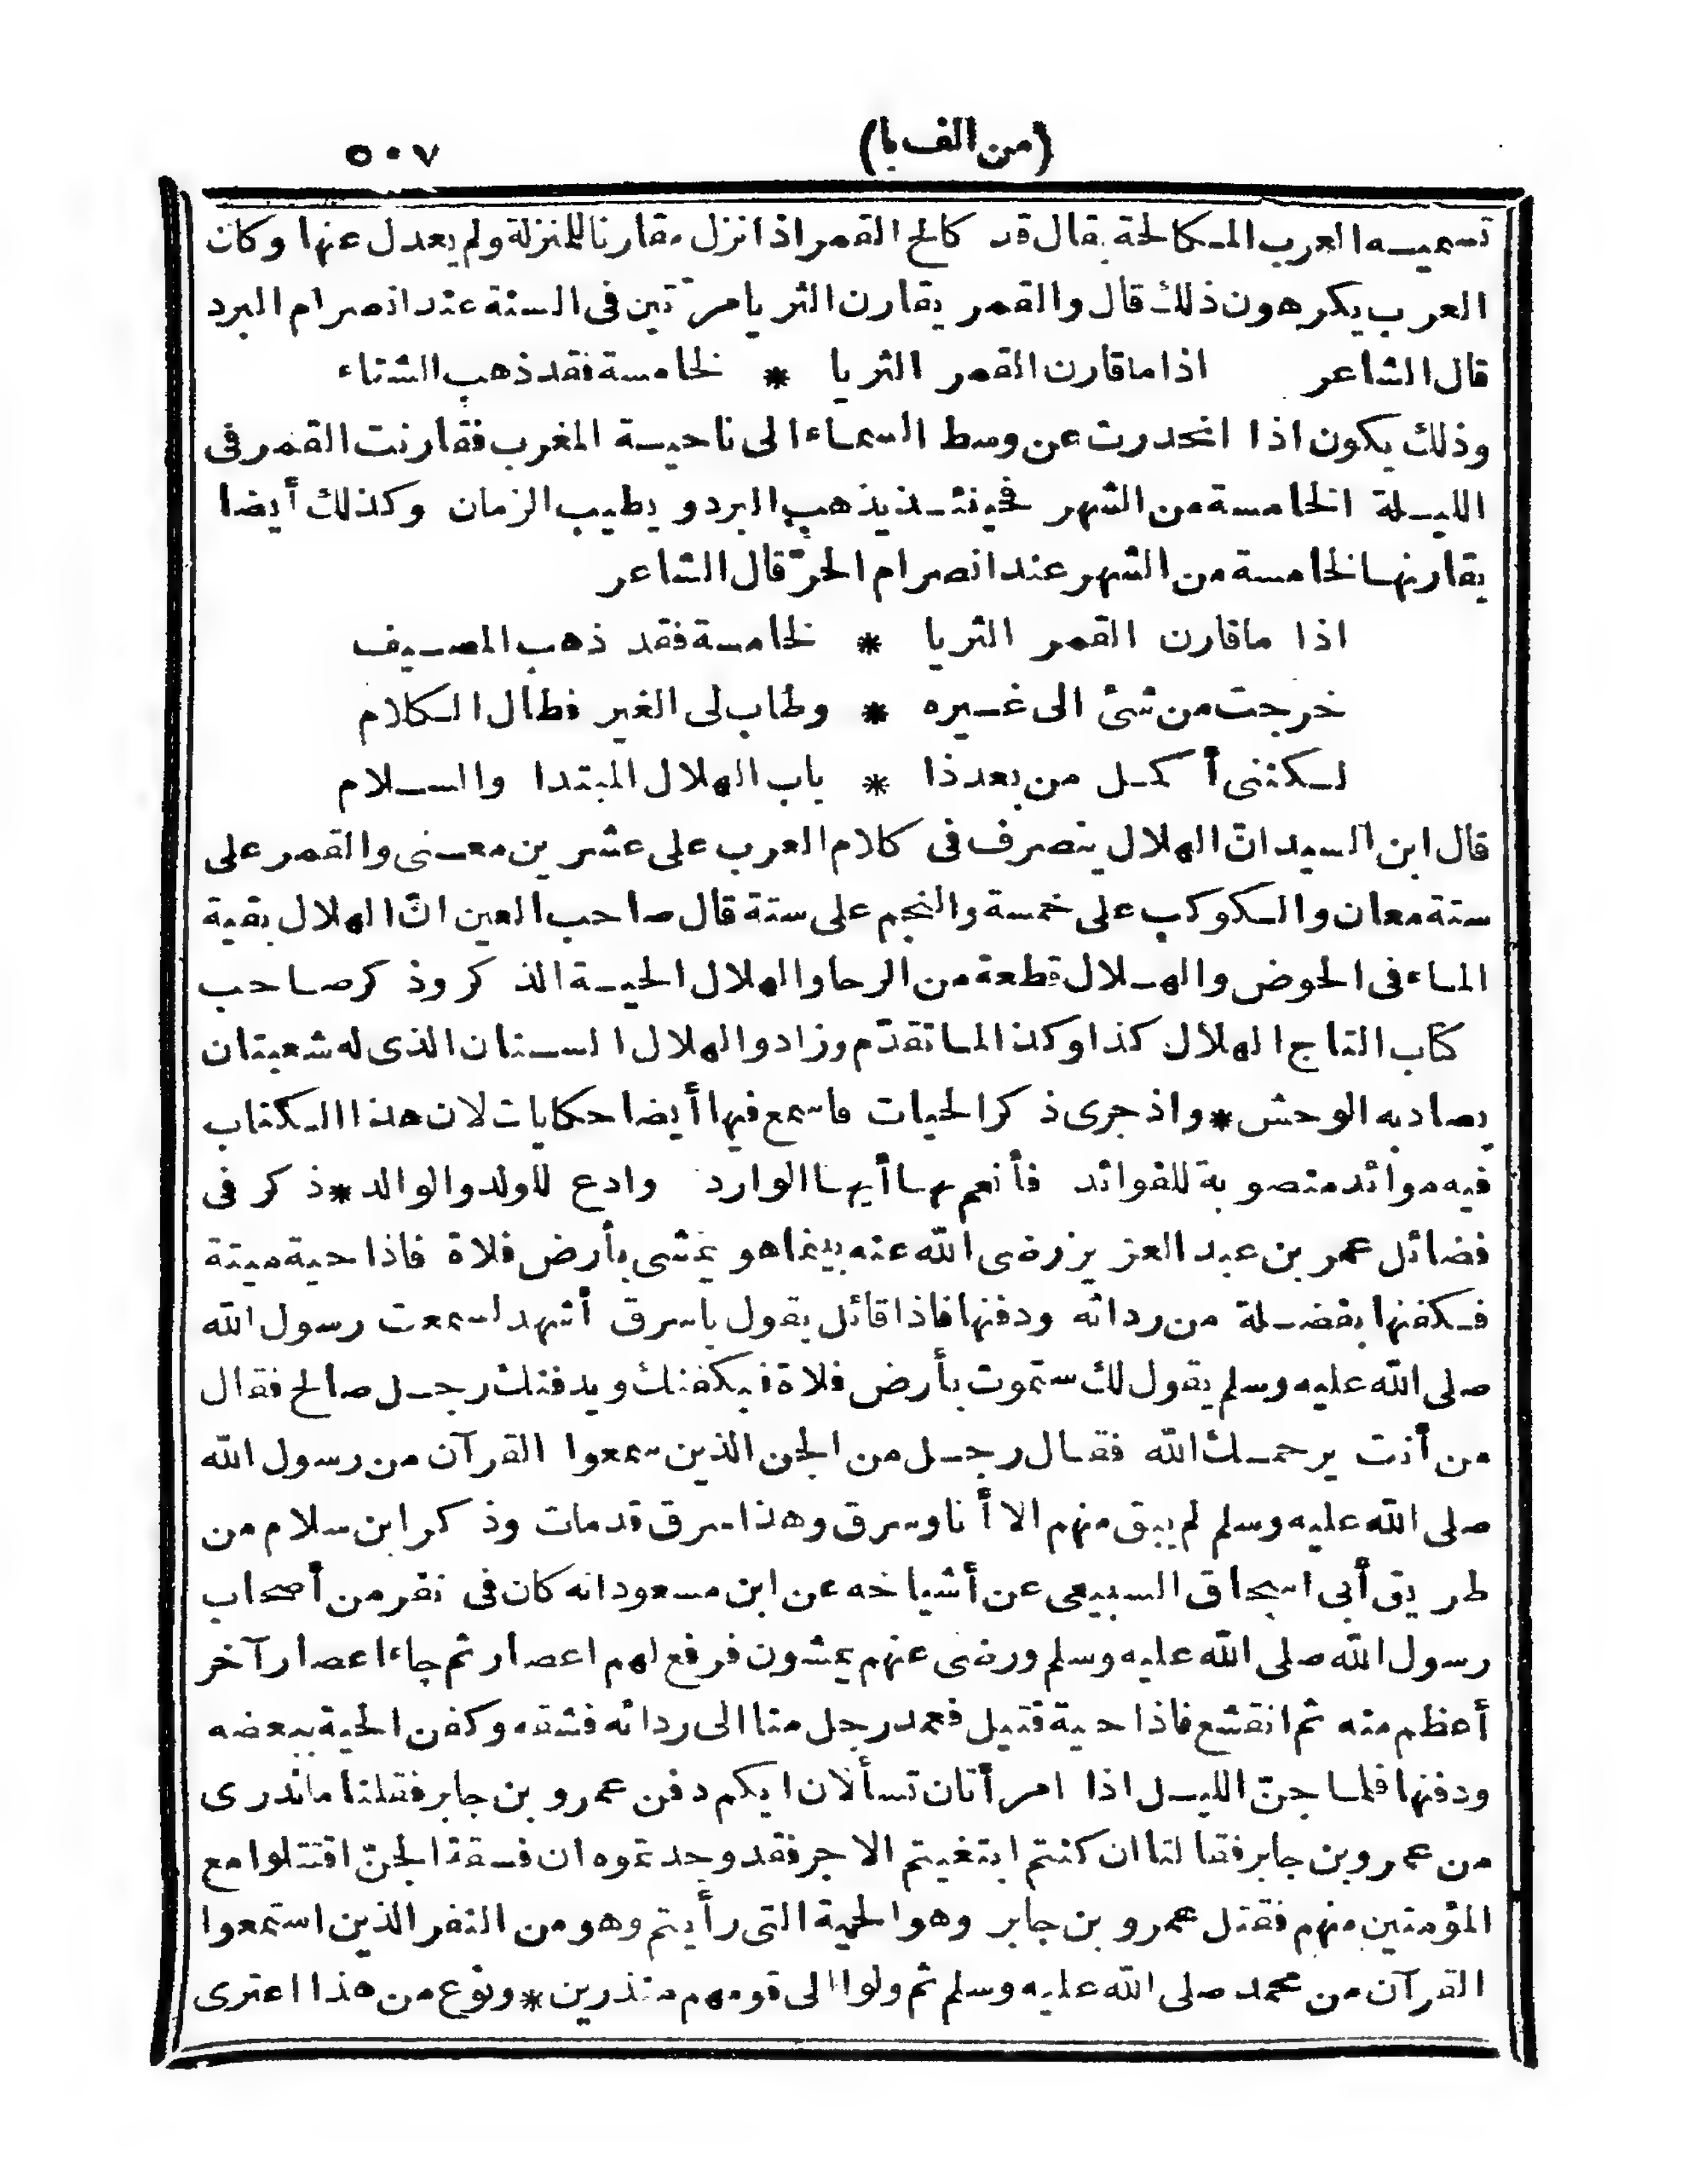 (من الف با)
٥٠٧
تسميه العرب المكالحة يقال قد كالح القمر اذا نزل مقارنا للمنزلة ولم يعدل عنها وكان
العرب يكرهون ذلك قال والقمر يقارن الثريا مرّتين فى السنة عند انصرام البرد
قال الشاعر اذا ما قارن القمر الثريا * لخامسة فقد ذهب الشتاء
وذلك يكون اذا انحدرت عن وسط السماء الى ناحية المغرب فقارنت القمر فى
الليلة الخامسة من الشهر فحينئذ يذهب البرد ويطيب الزمان وكذلك أيضا
يقارنها لخامسة من الشهر عند انصرام الحرّ قال الشاعر
اذا ما قارن القمر الثريا * لخامسة فقد ذهب المصيف
خرجت من شئ الى غيره * وطاب لى الغير فطال الكلام
لكننى أكمل من بعد ذا * باب الهلال المبتدا والسلام
قال ابن السيد انّ الهلال يتصرف فى كلام العرب على عشرين معنى والقمر على
ستة معان والكوكب على خمسة والنجم على ستة قال صاحب العين انّ الهلال بقية
الماء فى الحوض والهلال قطعة من الرحا والهلال الحية الذكر وذكر صاحب
كتاب التاج الهلال كذا وكذا لما تقدّم وزاد والهلال السنان الذى له شعبتان
يصاد به الوحش * واذ جرى ذكر الحيات فاسمع فيها أيضا حكايات لان هذا الكتاب
فيه موائد منصوبة للفوائد فأنعم بها أيها الوارد وادع للولد والوالد * ذكر فى
فضائل عمر بن عبد العزيز رضى الله عنه بينما هو يمشى بأرض فلاة فاذا حية ميتة
فكفنها بفضلة من ردائه ودفنها فاذا قائل يقول يا سرق أشهد لسمعت رسول الله
صلى الله عليه وسلم يقول لك ستموت بأرض فلاة فيكفنك ويدفنك رجل صالح فقال
من أنت يرحمك الله فقال رجل من الجن الذين سمعوا القرآن من رسول الله
صلى الله عليه وسلم لم يبق منهم الا أنا وسرق وهذا سرق قد مات وذكر ابن سلام من
طريق أبى اسحاق السبيعى عن أشياخه عن ابن مسعود انه كان فى نفر من أصحاب
رسول الله صلى الله عليه وسلم ورضى عنهم يمشون فرفع لهم اعصار ثم جاء اعصار آخر
أعظم منه ثم انقشع فاذا حية قتيل فعمد رجل منا الى ردائه فشقه وكفن الحية ببعضه
ودفنها فلما جنّ الليل اذا امرأتان تسألان ايكم دفن عمرو بن جابر فقلنا ما ندرى
من عمرو بن جابر فقالتا ان كنتم ابتغيتم الاجر فقد وجدتموه ان فسقة الجنّ اقتتلوا مع
المؤمنين منهم فقتل عمرو بن جابر وهو الحية التى رأيتم وهو من النفر الذين استمعوا
القرآن من محمد صلى الله عليه وسلم ثم ولوا الى قومهم منذرين * ونوع من هذا اعترى